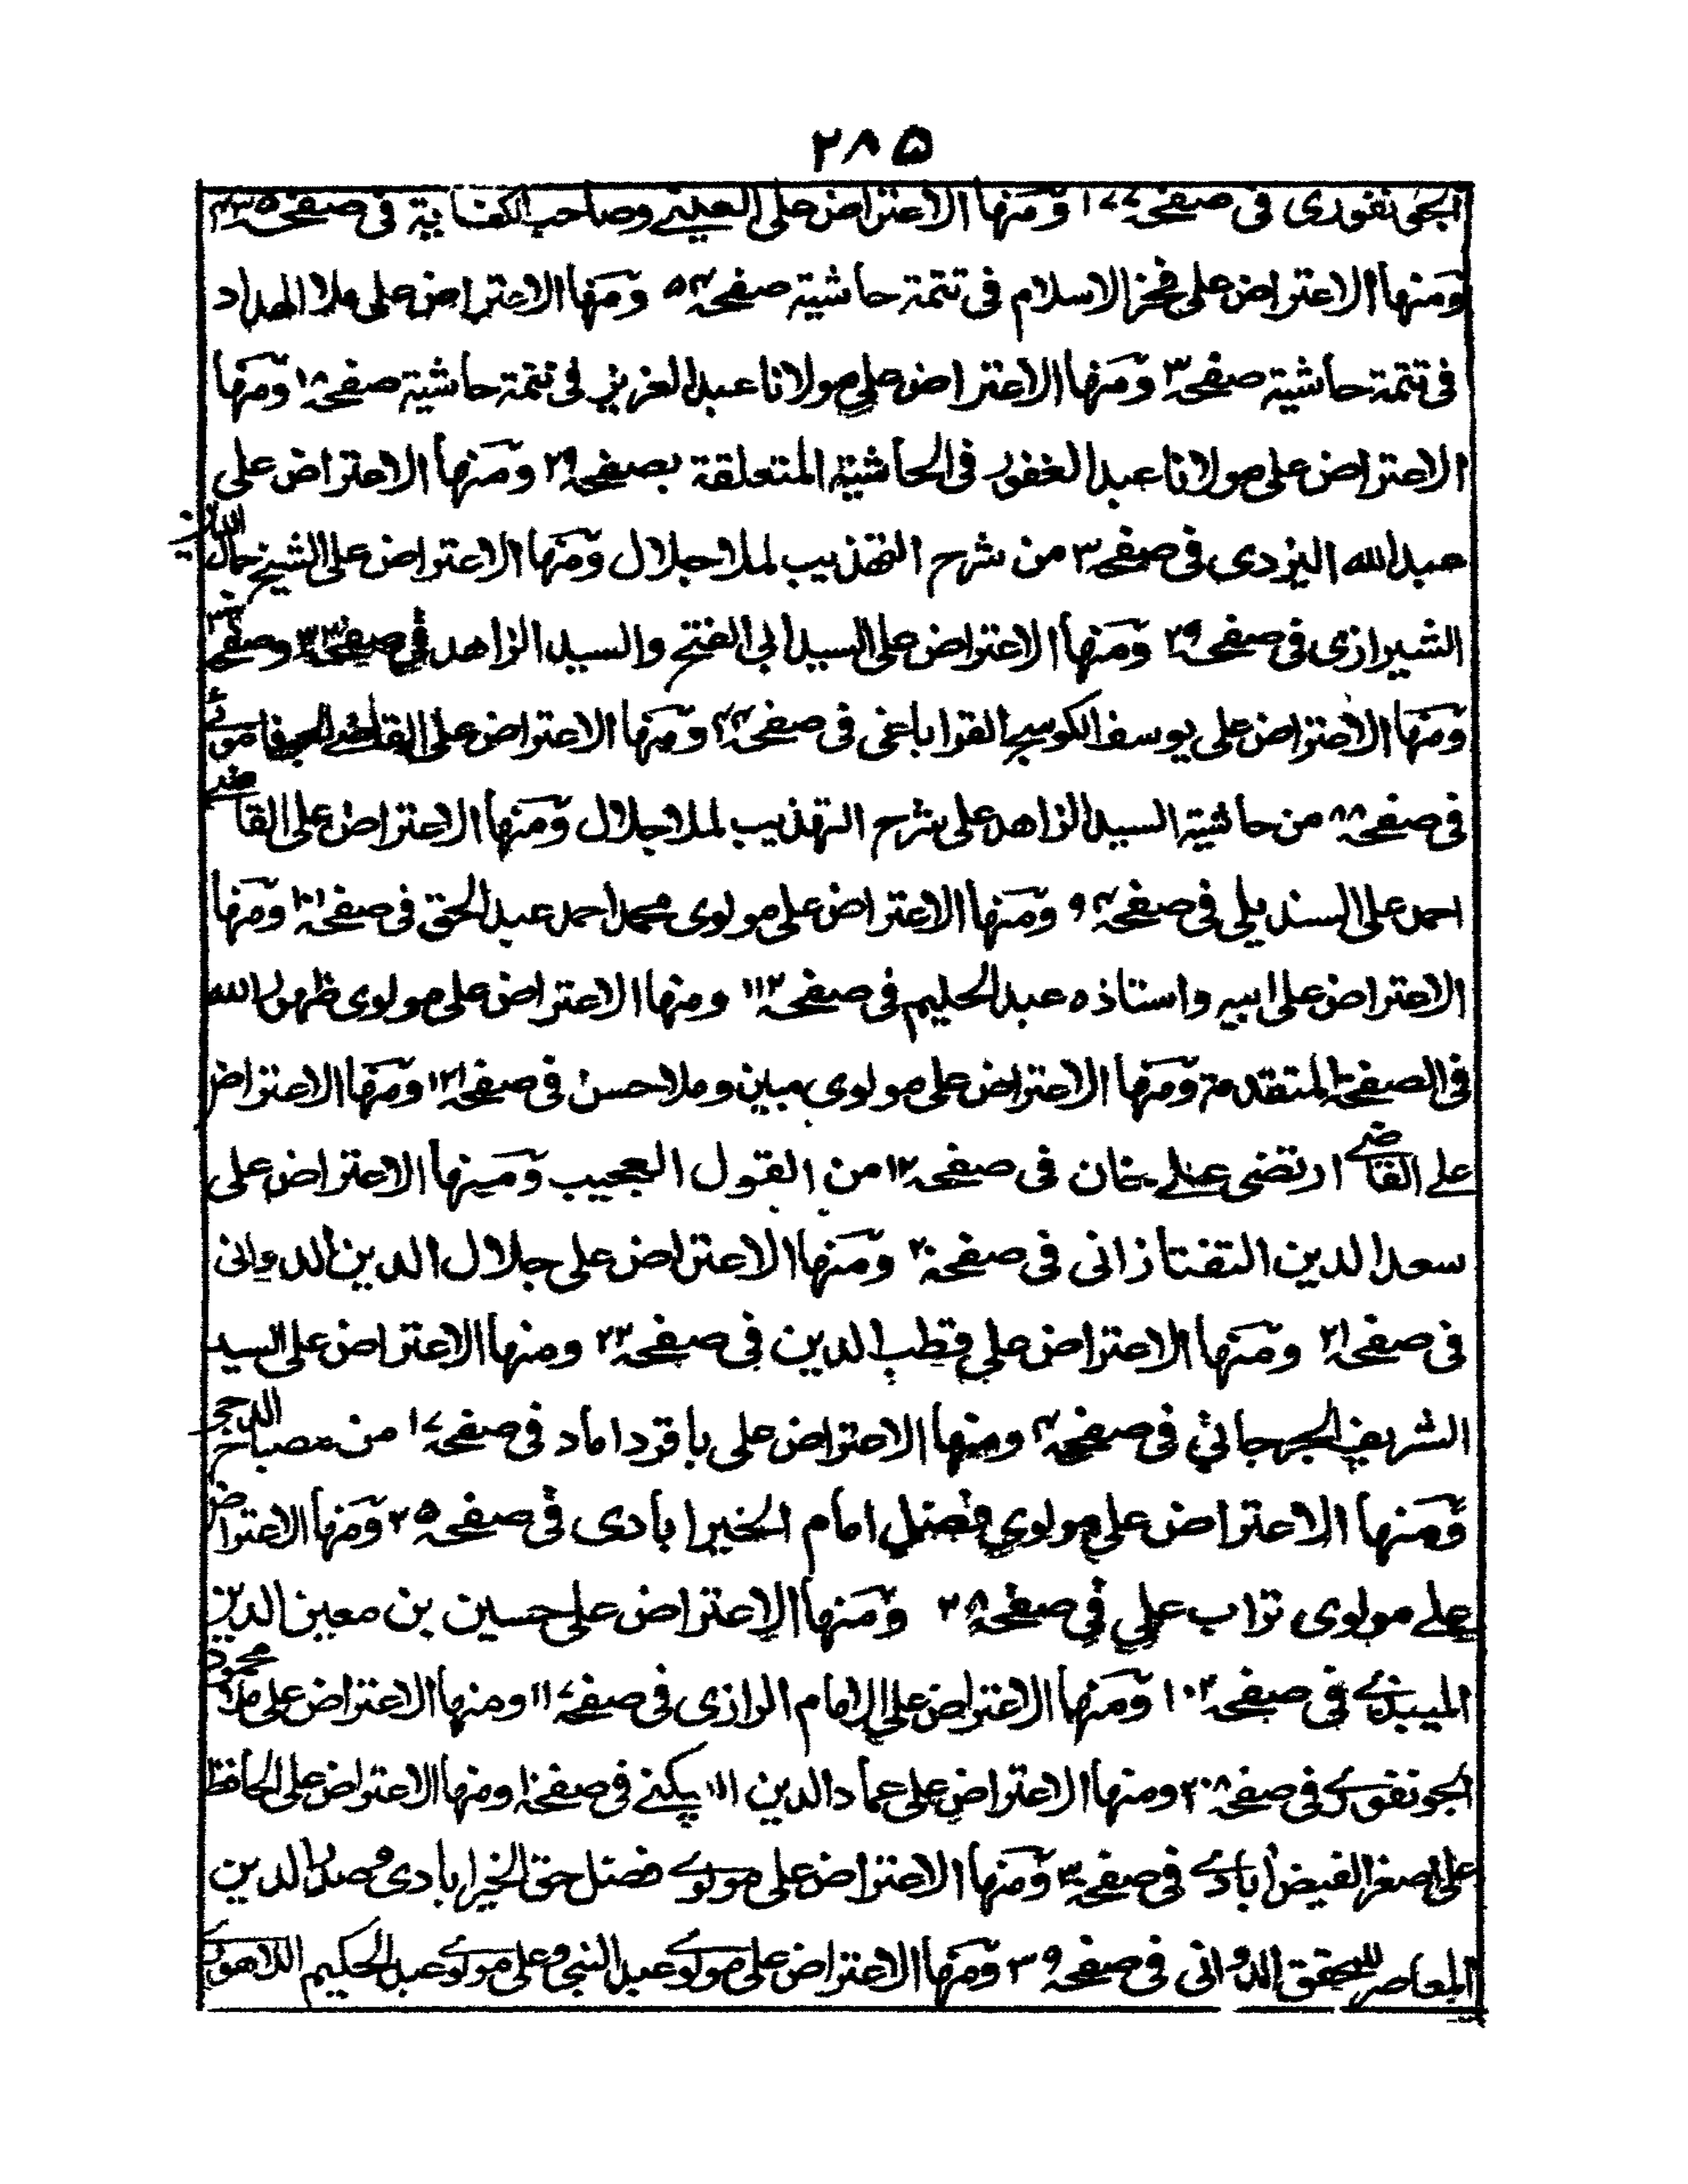 ٢٨٥
الجونفوری فی صفحہ ١٧٧ ومنها الاعتراض علی العینے وصاحب الکفایة فی صفحہ
ومنها الاعتراض علی فخر الاسلام فی تتمة حاشیة صفحہ ٥٤ ومنها الاعتراض علی ملا الهداد
فی تتمة حاشیة صفحہ ٣ ومنها الاعتراض علی مولانا عبد العزیز فی تتمة حاشیة صفحہ ١٨ ومنها
الاعتراض علی مولانا عبد الغفور فی الحاشیة المتعلقة بصفحہ ٢٩ ومنها الاعتراض علی
عبد الله الیزدی فی صفحہ ٣ من شرح التهذیب لملا جلال ومنها الاعتراض علی الشیخ جمال الدین
الشیرازی فی صفحہ ٢٩ ومنها الاعتراض علی السید ابی الفتح والسید الزاهد فی صفحہ ٣٣ وصفحہ
ومنها الاعتراض علی یوسف الکوسج القراباغی فی صفحہ ٤٤ ومنها الاعتراض علی القاضی الجوفاموئے
فی صفحہ ٨٨ من حاشیة السید الزاهد علی شرح التهذیب لملا جلال ومنها الاعتراض علی القاضے
احمد علی السندیلی فی صفحہ ٩٤ ومنها الاعتراض علی مولوی محمد احمد عبد الحق فی صفحہ ١٠١ ومنها
الاعتراض علی ابیه واستاذه عبد الحلیم فی صفحہ ١١٢ ومنها الاعتراض علی مولوی ظهور الله
فی الصفحة المتقدمة ومنها الاعتراض علی مولوی مبین وملا حسن فی صفحہ ١٢١ ومنها الاعتراض
علے القاضے ارتضی علے خان فی صفحہ ١٢ من القول العجیب ومنها الاعتراض علی
سعد الدین التفتازانی فی صفحہ ٢٠ ومنها الاعتراض علی جلال الدین الدوانی
فی صفحہ ٢١ ومنها الاعتراض علی قطب الدین فی صفحہ ٢٣ ومنها الاعتراض علی السید
الشریف الجرجانی فی صفحہ ٤ ومنها الاعتراض علی باقر داماد فی صفحہ ١٧ من مصباح الدجی
ومنها الاعتراض علی مولوی فضل امام الخیرابادی فی صفحہ ٢٥ ومنها الاعتراض
علے مولوی تراب علی فی صفحہ ٢٨ ومنها الاعتراض علی حسین بن معین الدین
المیبذے فی صفحہ ١٠٣ ومنها الاعتراض علی الامام الرازی فی صفحہ ١١٧ ومنها الاعتراض علی ملا محمود
الجونفورے فی صفحہ ٢٠٨ ومنها الاعتراض علی عماد الدین اللبکنے فی صفحہ ١٠ ومنها الاعتراض علی الحافظ
علی اصغر الفیض ابادے فی صفحہ ٣٠ ومنها الاعتراض علی مولوے فضل حق الخیرابادی وصدر الدین
المعاصر للمحقق الدوانی فی صفحہ ٣٩ ومنها الاعتراض علی مولوے عبد النبی وعلی مولوے عبد الحکیم اللاهورے